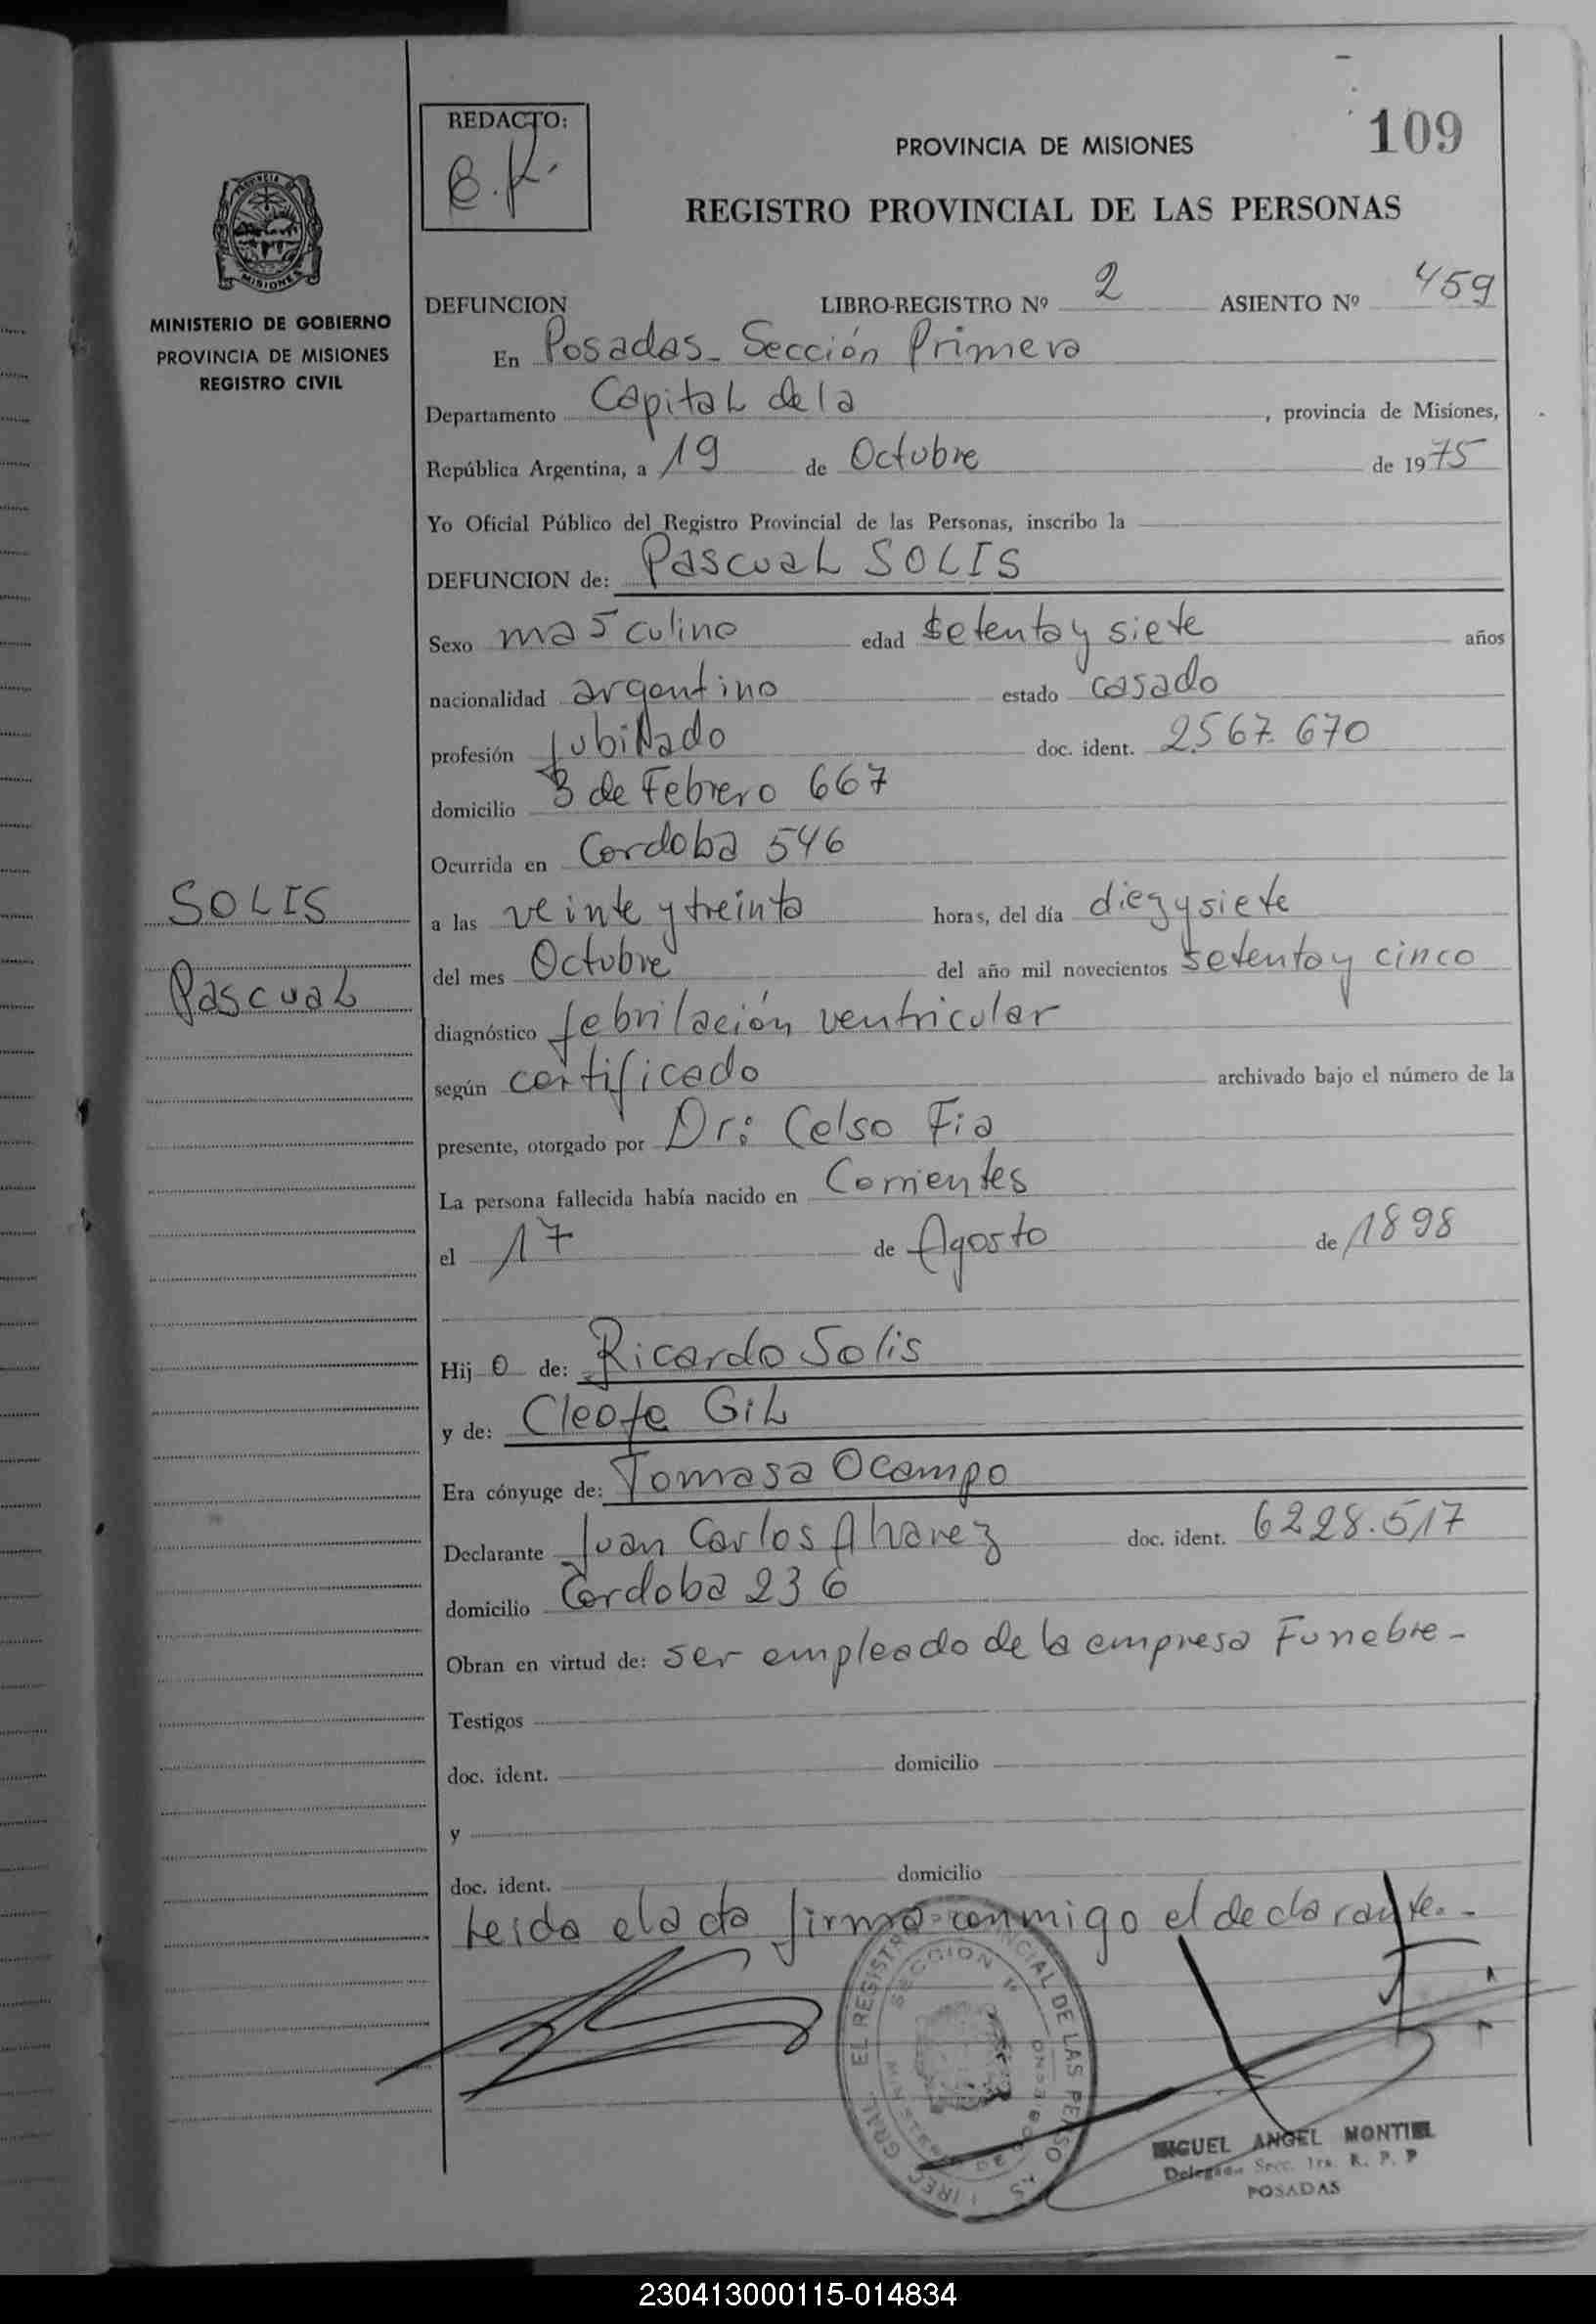 REDACTO:
PROVINCIA DE MISIONES
109
REGISTRO PROVINCIAL DE LAS PERSONAS
MISIONES
MINISTERIO DE GOBIERNO
PROVINCIA DE MISIONES
REGISTRO CIVIL
DEFUNCION LIBRO-REGISTRO Nº 2 ASIENTO Nº 459
En Posadas - Sección Primera
Departamento Capital de la , provincia de Misiones,
República Argentina, a 19 de Octubre de 1975
Yo Oficial Público del Registro Provincial de las Personas, inscribo la
DEFUNCION de: Pascual SOLIS
Sexo masculino edad setenta y siete años
nacionalidad argentino estado casado
profesión Jubilado doc. ident. 2567.670
domicilio 3 de Febrero 667
Ocurrida en Cordoba 546
SOLIS
Pascual
a las veinte y treinta horas, del día diez y siete
del mes Octubre del año mil novecientos setenta y cinco
diagnóstico febrilación ventricular
según certificado archivado bajo el número de la
presente, otorgado por Dr: Celso Fia
La persona fallecida había nacido en Corrientes
el 17 de Agosto de 1898
Hijo de: Ricardo Solis
y de: Cleofe Gil
Era cónyuge de: Tomasa Ocampo
Declarante Juan Carlos Alvarez doc. ident. 6228.517
domicilio Cordoba 236
Obran en virtud de: ser empleado de la empresa Funebre -
Testigos
doc. ident. domicilio
y
doc. ident. domicilio
Leida el acta firma conmigo el declarante. -
MIGUEL ANGEL MONTIEL
Secc. 1ra. R. P. P
POSADAS
230413000115-014834